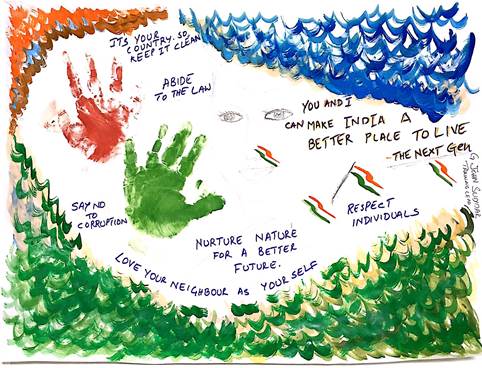 ITS YOUR
COUNTRY. SO
KEEP IT CLEAN
ABIDE
TO THE LAW
YOU AND I
CAN MAKE INDIA A
BETTER PLACE TO LIVE
-THE NEXT Gen
SAY NO
TO
CORRUPTION
RESPECT
INDIVIDUALS
NURTURE NATURE
FOR A BETTER
FUTURE.
LOVE YOUR NEIGHBOUR AS YOUR SELF
G JOHN